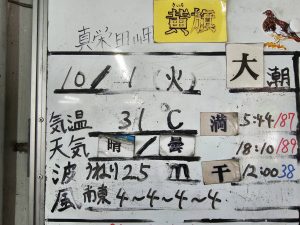 真栄田岬
黄旗
10/1(火) 大潮
気温 31℃ 満 5:44/187
天気 晴/曇 18:10/189
波 うねり2.5m 干 12:00 38
風 南東 4~4~4~4